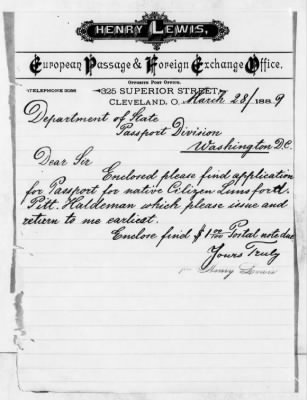 HENRY LEWIS,
European Passage & Foreign Exchange Office.
OPPOSITE POST OFFICE.
TELEPHONE 2056
325 SUPERIOR STREET,
CLEVELAND, O. March 28/ 1889
Department of State
Passport Division
Washington D.C.
Dear Sir
Enclosed please find application
for Passport for native Citizen Linsford.
Pitt. Haldeman which please issue and
return to me earliest.
Enclose find $1 00/100 Postal note due
Yours Truly
Henry Lewis